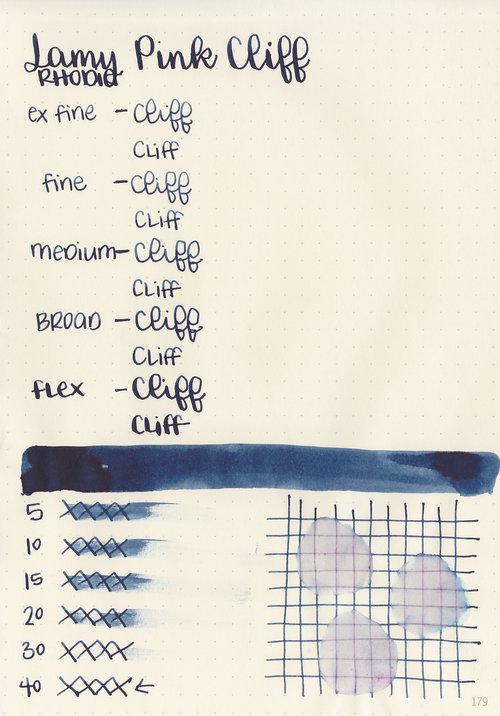 Lamy Pink Cliff
RHODIA
ex fine - Cliff
Cliff
fine - Cliff
Cliff
medium - Cliff
Cliff
BROAD - Cliff
Cliff
FLEX - Cliff
Cliff
5 XXXX
10 XXXX
15 XXXX
20 XXXX
30 XXXX
40 XXXX ←
179